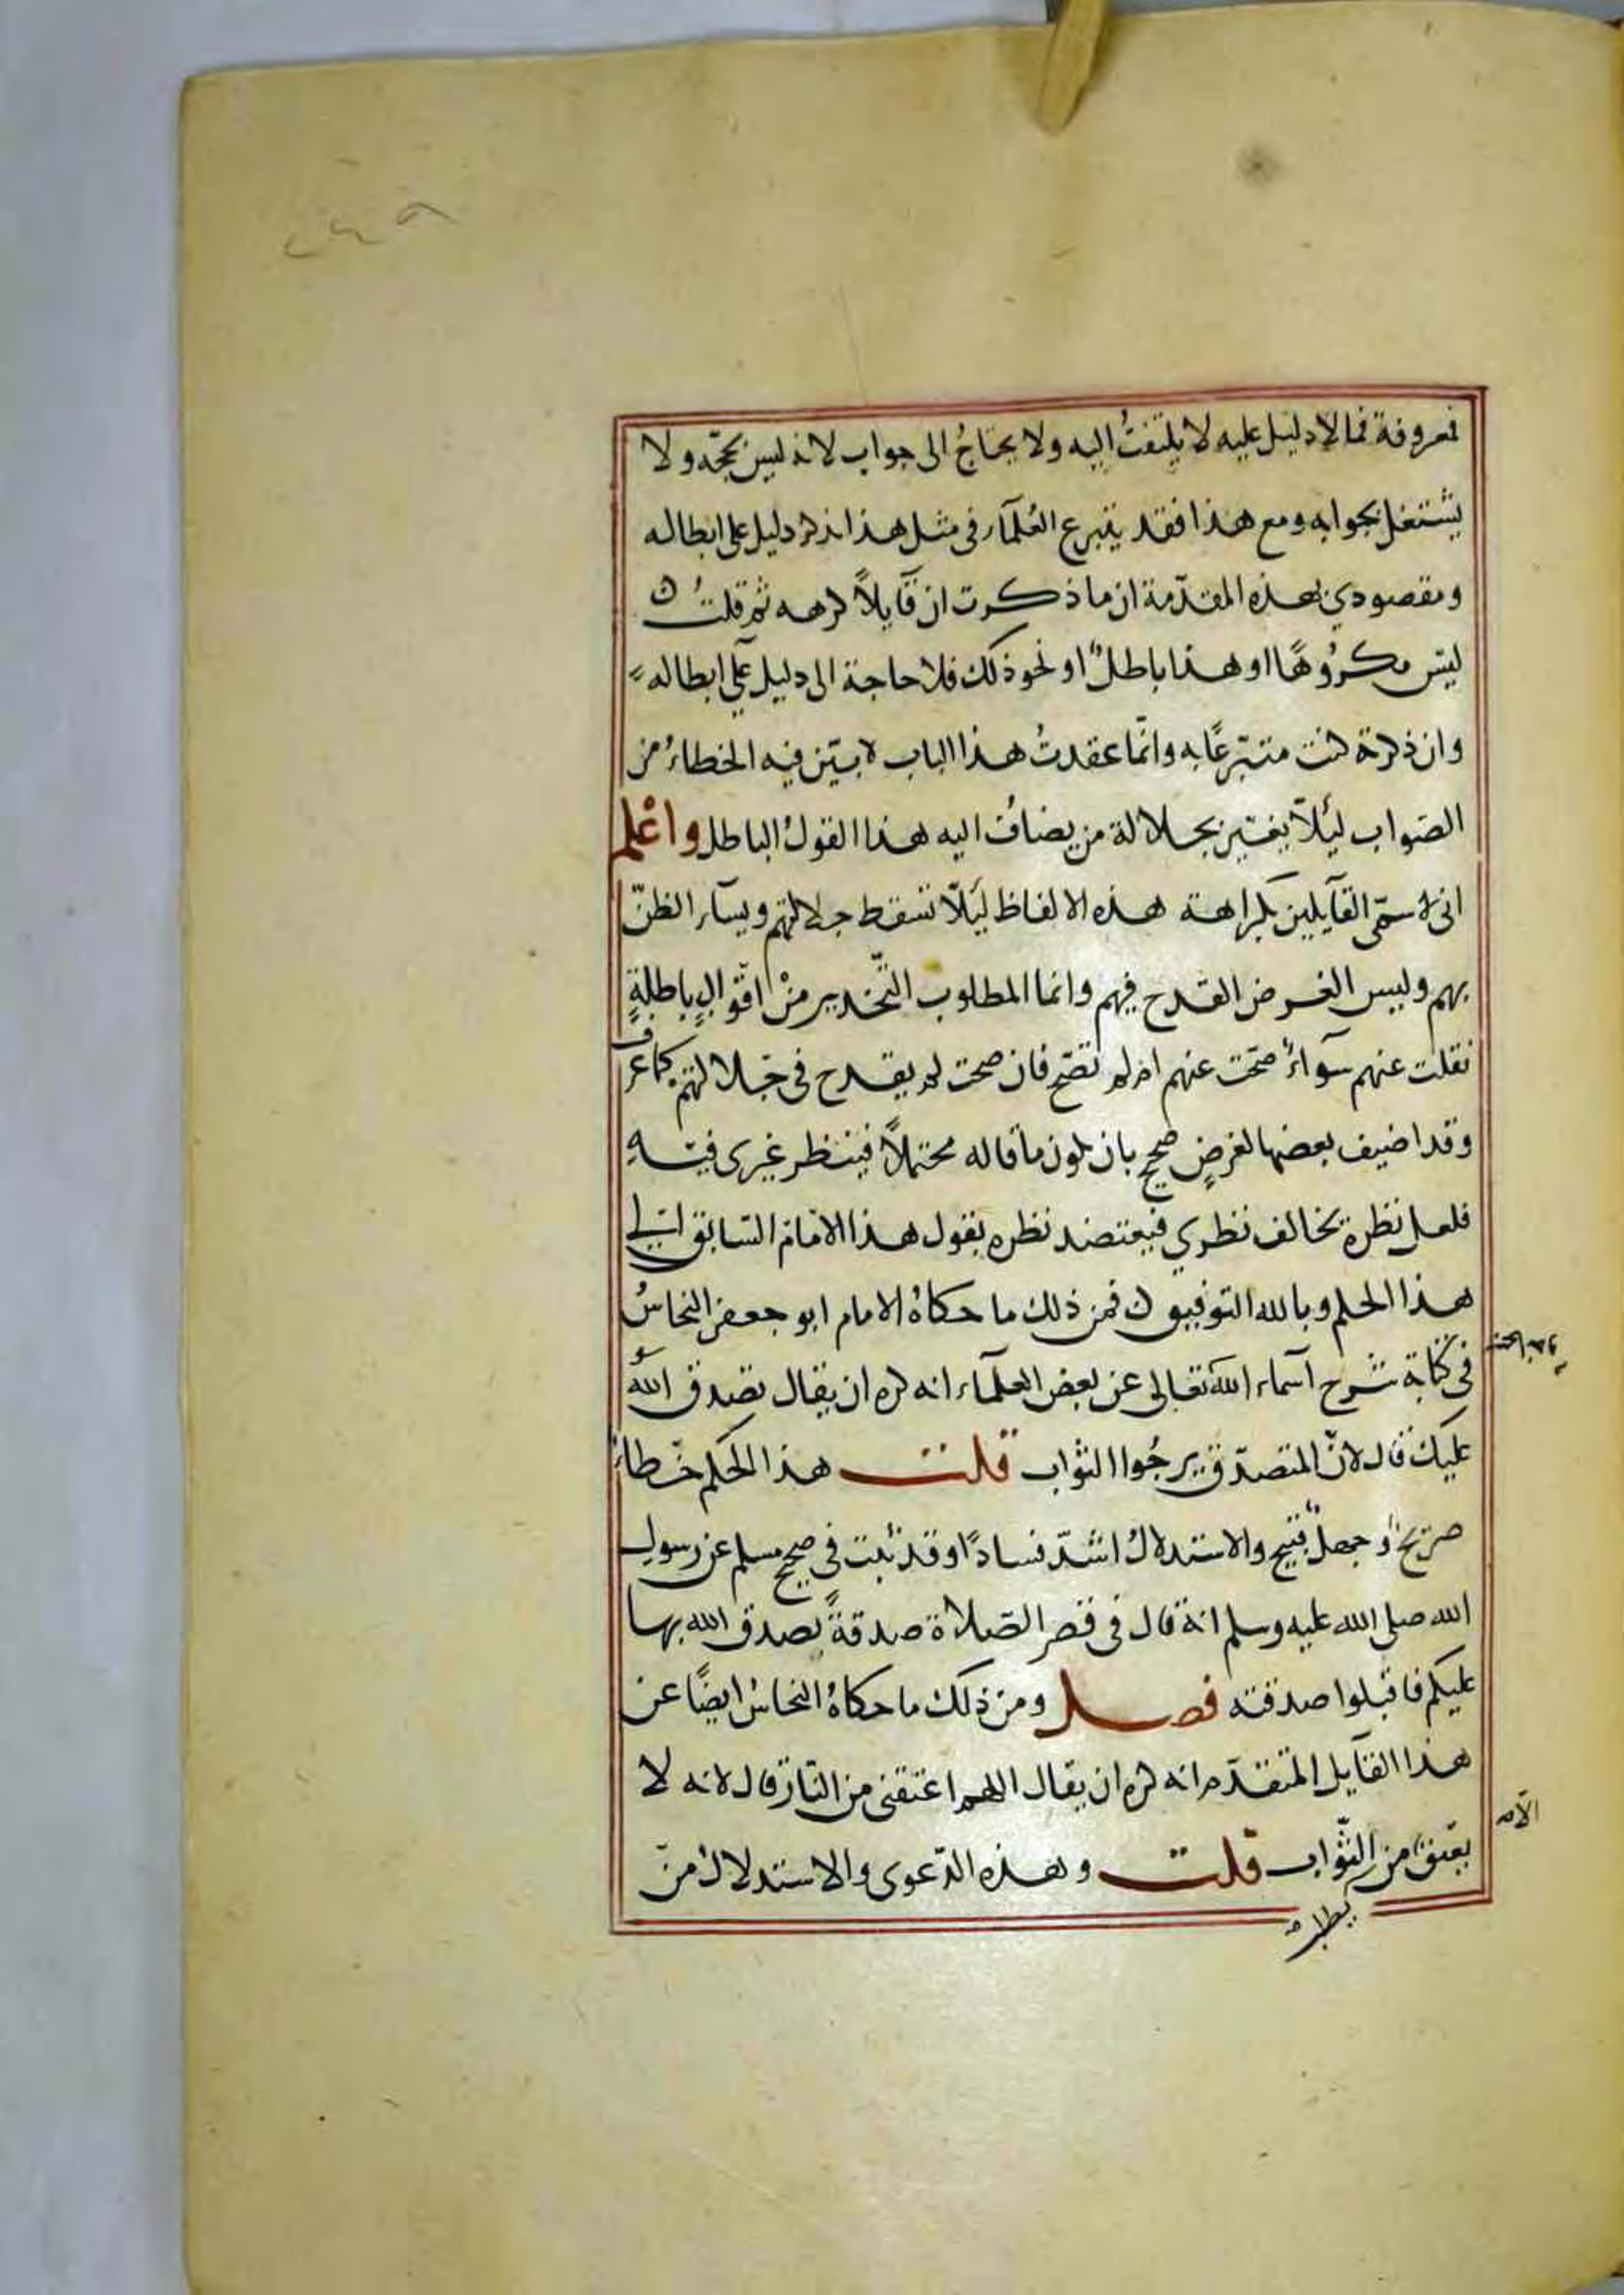 معروفة فما لا دليل عليه لا يلتفتُ اليه ولا يحتاجُ الى جواب لانه ليس بحجّة ولا
يشتغل بجوابه ومع هذا فقد يتبرع العُلمآء في مثل هذا بذكر دليل على ابطاله
ومقصودي بهذه المقدّمة ان ما ذكرت ان قآيلاً كرهه ثم قلتُ
ليس مكرُوهًا او هذا باطلٌ او نحو ذلك فلا حاجة الى دليل علىٰ ابطاله
وان ذكرته كنت متبرّعًا به وانّما عقدتُ هذا الباب لابيّن فيه الخطاءُ من
الصّواب ليئلاّ يغتّر بجلالة من يضافُ اليه هذا القولُ الباطل واعْلم
انى لا سمّى القآيلين بكراهة هذه الالفاظ ليَلاّ تسقط جلالتهم ويسآء الظنّ
بهم وليس الغرض القدح فيهم وانما المطلوب التّحذير منْ اقوالٍ باطلةٍ
نقلت عنهم سوآءٌ صحّت عنهم ام لم تصّح فان صحت لم يقدح فى جلالتهم كما عرف
وقد اضيف بعضها لغرضٍ صحيحٍ بان يكون ما قاله محتملاً فينظر غيرى فيه
فلعل نظره يخالف نظري فيعتضد نظره بقول هذا الامام السّابق الى
هذا الحكم وبالله التوفيق فمن ذلك ما حكاهُ الامام ابو جعفر النحاسُ
فى كتابه شرح اسماء اللهَ تعالى عن بعض العلمآء انه كره ان يقال تصدق اللهُ
عليك قال لانّ المتصدّق يرجُوا الثواب قلت هذا الحكم خطاءٌ
صريحٌ وجهلٌ قبيح والاستدلالُ اشدّ فسادًا وقد ثبت فى صحيح مسلم عن رسول
الله صلى الله عليه وسلم انه قال فى قصر الصّلاة صدقةً تصدق الله بها
عليكم فاقبلوا صدقته فصل ومن ذلك ما حكاهُ النحاسُ ايضًا عن
هذا القآيل المتقدّم انه كره ان يقال اللهم اعتقنى من النّار قال لانه لا
الّا
يعتق من الثّواب قلت وهذه الدّعوى والاستدلالُ منّ
يطلب